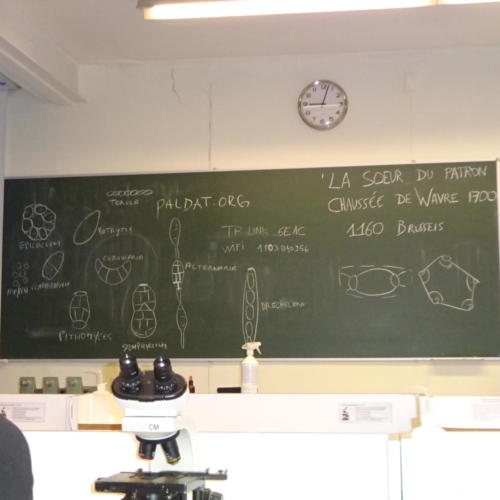 'LA SOEUR DU PATRON
CHAUSSÉE DE WAVRE 1700
1160 BRUSSELS
TORULA
PALDAT.ORG
EPICOCCUM
BOTRYTIS
TP-LINK_6EAC
WIFI
CURVULARIA
ALTERNARIA
CLADOSPORIUM
DRECHSLERA
PITHOMYCES
STEMPHYLIUM
CM